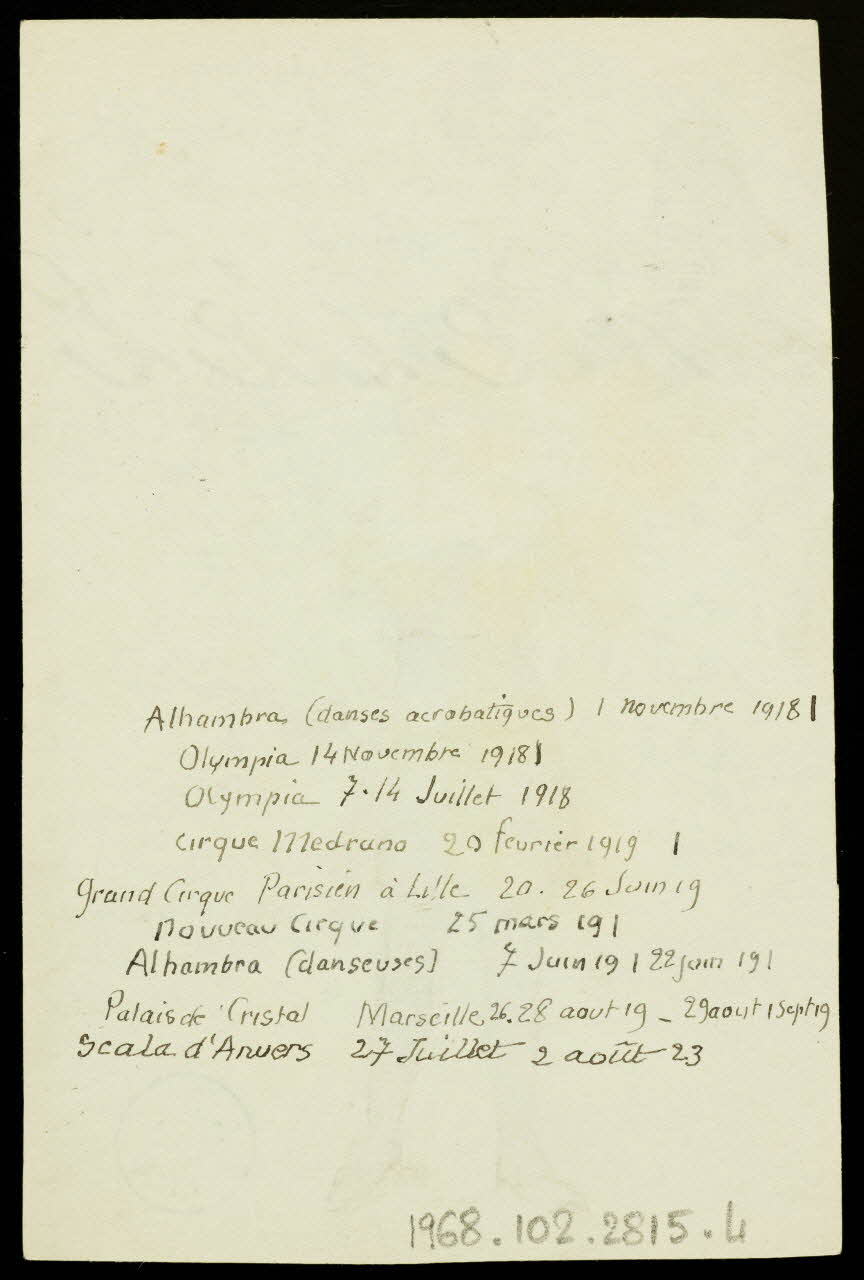 Alhambra (danses acrobatiques) 1 novembre 1918 |
Olympia 14 Novembre 1918 |
Olympia 7.14 Juillet 1918
Cirque Medrano 20 fevrier 1919 |
Grand Cirque Parisien à Lille 20.26 Juin 19
Nouveau Cirque 25 mars 19 |
Alhambra (danseuses) 7 Juin 19 | 22 juin 19 |
Palais de Cristal Marseille 26.28 aout 19 _ 29 aout 1 Sept 19
Scala d'Anvers 27 Juillet 2 août 23
1968.102.2815.4